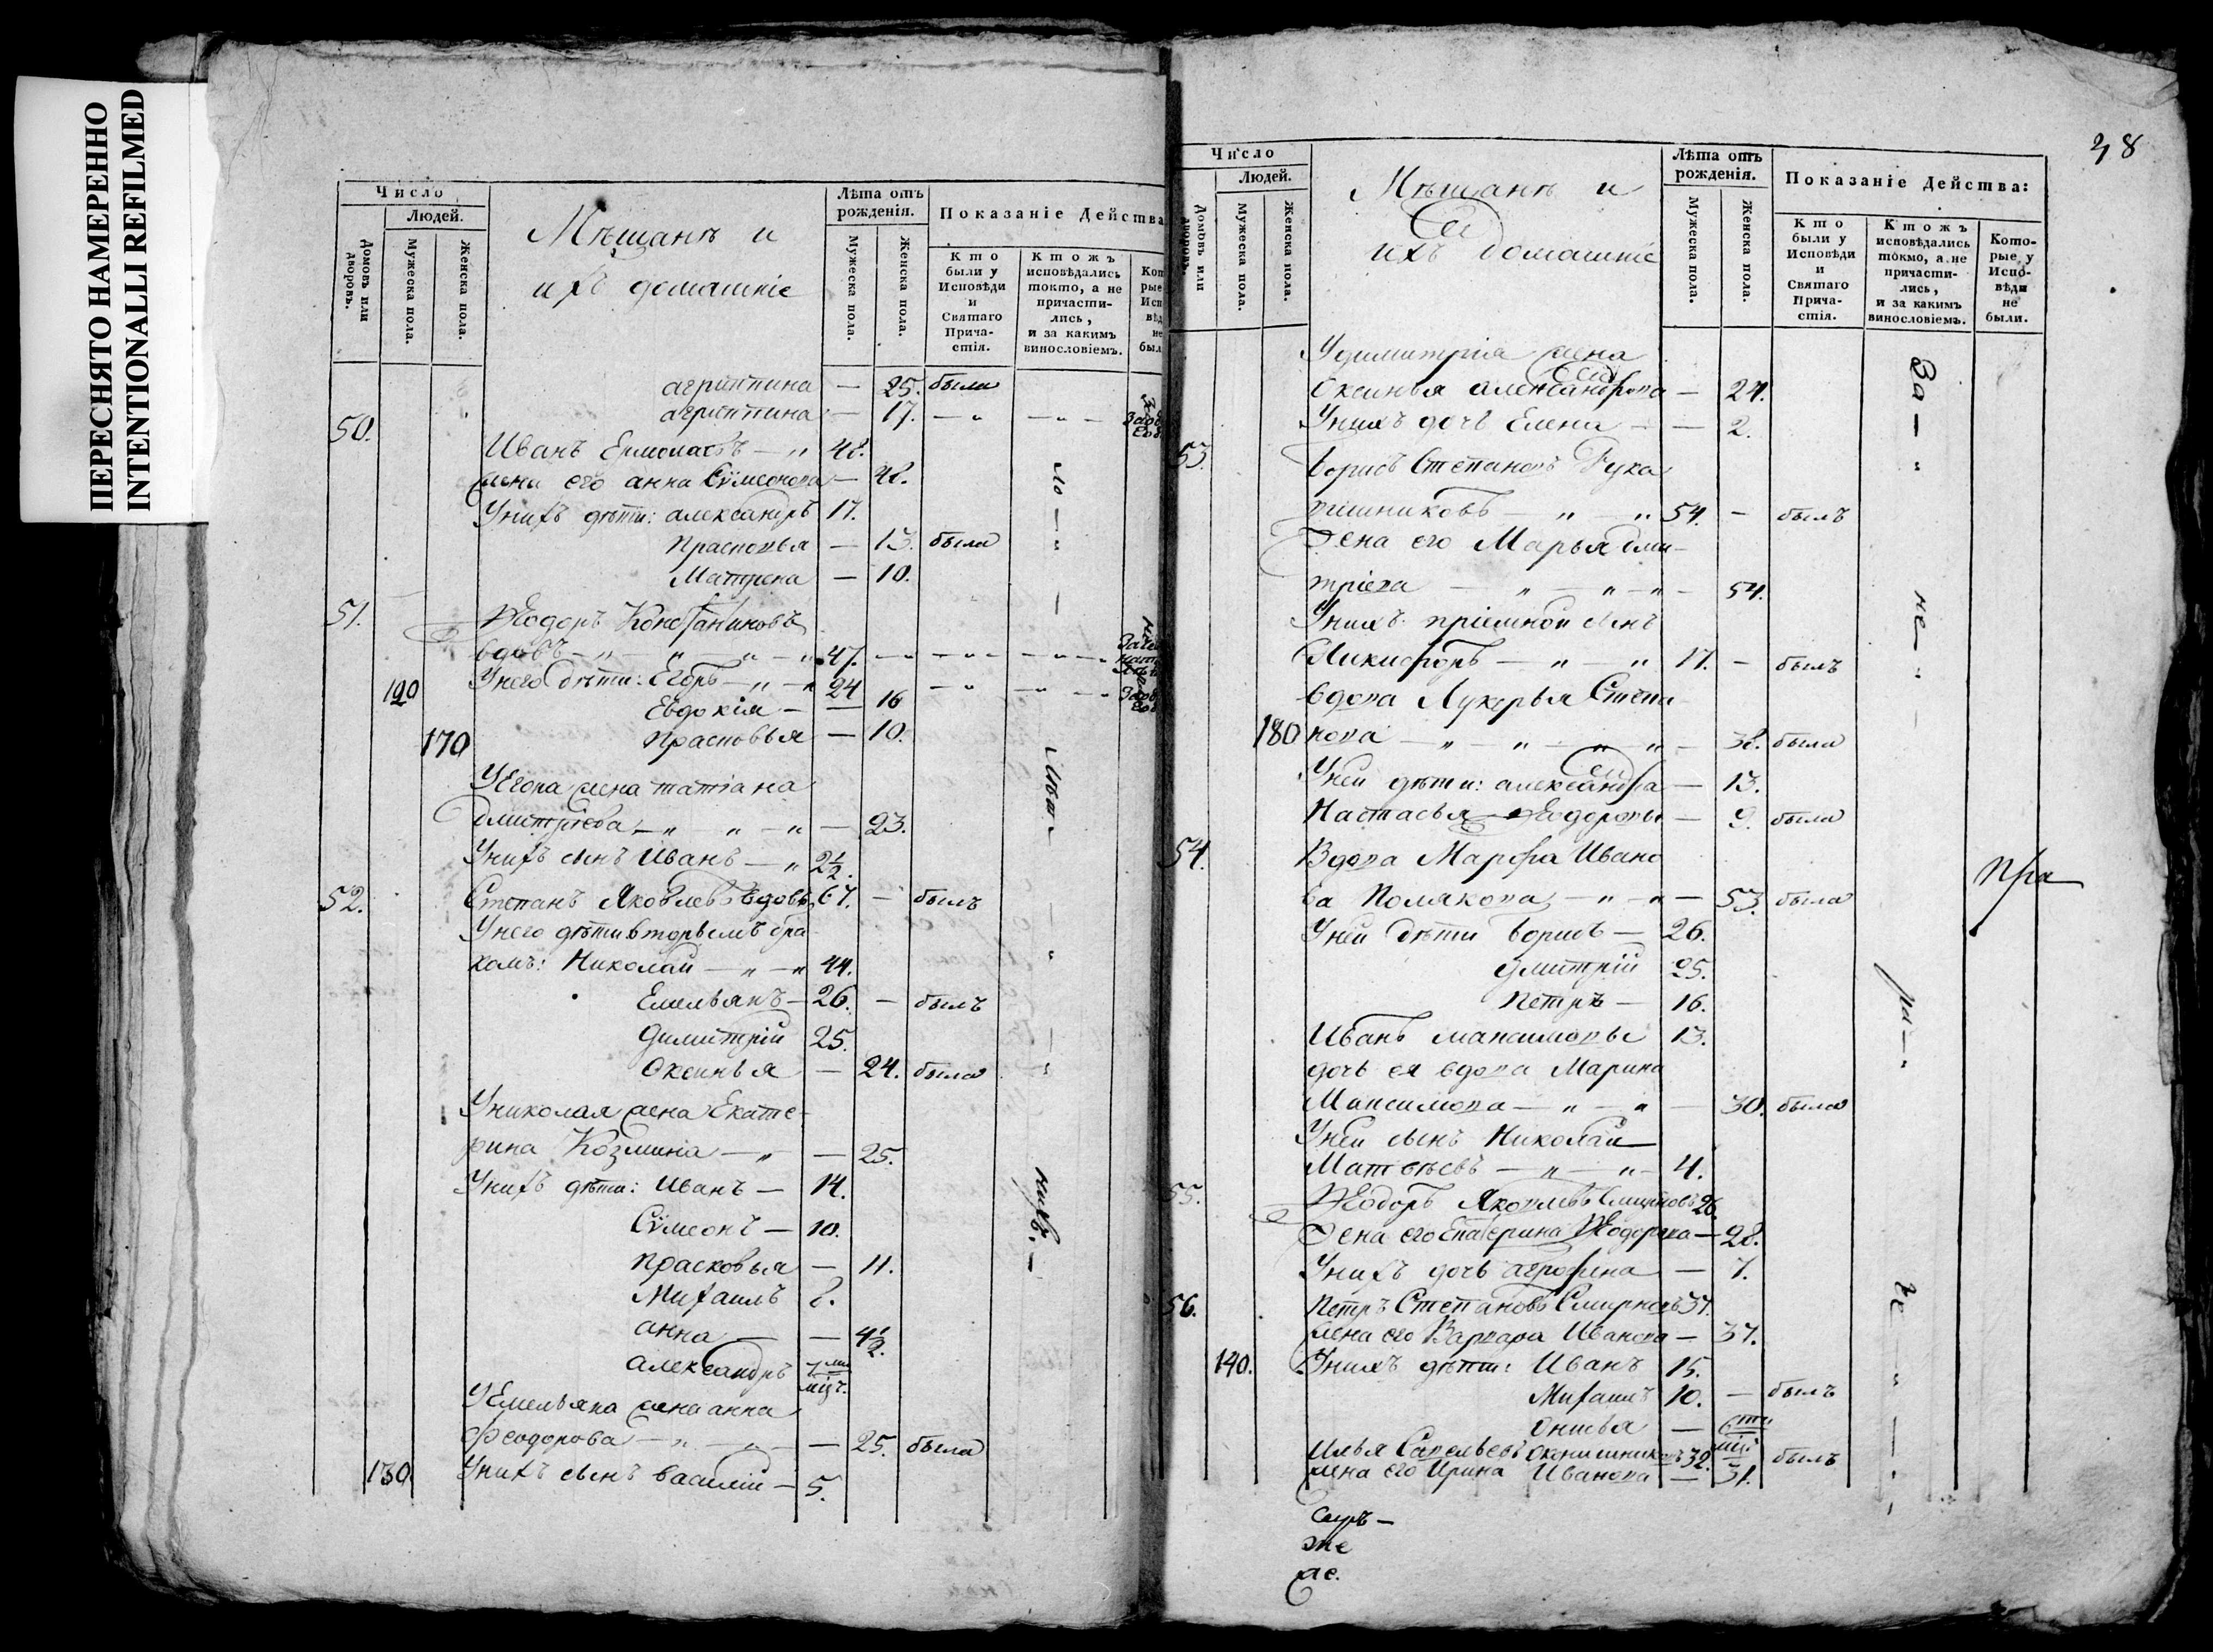 ПЕРЕСНЯТО НАМЕРЕННО
INTENTIONALLI REFILMED
Число
Людей.
Домовъ или дворовъ.
Мужеска пола.
Женска пола.
Мѣщанъ и
ихъ домашніе
Лѣта отъ рожденія.
Мужеска пола.
Женска пола.
Показаніе Действа
Кто были у Исповѣди и Святаго Прича-стія.
Ктожъ исповѣдались токмо, а не причасти-лись, и за какимъ винословіемъ.
агриппина — 25. были
агриппина — 17. — „ — „ —
50.
Иванъ Ермолаевъ — „ 48.
жена его анна Сѵмеонова — 48.
Унихъ дѣти: александръ 17.
Прасковья — 13. была
Матрена — 10.
51. Ѳеодоръ Константиновъ
вдовъ — „ — „ „ — „ 47. — „ — „ — „ — „ —
120 Унего дѣти: Егоръ — „ — „ 24 — „ — „ — „
Евдокія — — 16
170 Прасковья — 10.
УЕгора жена татіана
дмитріева — „ „ — „ — 23.
Унихъ сынъ Иванъ — „ 2 1/2.
52. Степанъ Яковлевъ вдовъ 67. — былъ
Унего дѣти вторымъ бра
комъ: Николай — „ — „ 44.
Емельянъ — 26. — былъ
Димитрій 25.
Оксинья — 24. была
Униколая жена Екате-
рина Козмина — „ — 25.
Унихъ дѣти: Иванъ — 14.
Сѵмеонъ — 10.
Прасковья — 11.
Михаилъ 8.
анна — — 4 1/2.
александръ
УЕмельяна жена анна
Феодорова — „ — „ — — 25. была
130. Унихъ сынъ василій — 5.
38
Число
Людей.
Домовъ или дворовъ.
Мужеска пола.
Женска пола.
Мѣщанъ и
ихъ домашніе
Лѣта отъ рожденія.
Мужеска пола.
Женска пола.
Показаніе Действа:
Кто были у Исповѣди и Святаго Прича-стія.
Ктожъ исповѣдались токмо, а не причасти-лись, и за какимъ винословіемъ.
Кото-рые у Испо-вѣди не были.
Удимитрія жена
Оксинья александрова — 24.
Унихъ дочь Елена — — 2.
53. борисъ Степановъ Рука
вишниковъ — „ — „ 54. — былъ
Жена его Марья дми-
тріева — „ — „ — „ — 54.
Унихъ пріемной сынъ
Никифоръ — „ — „ 17. — былъ
вдова Лукерья Степа
180 нова — „ — „ — „ — „ — 38. была
Уней дѣти: александра — 13.
Настасья Ѳеодоровы — 9. была
54. Вдова Марфа Ивано
ва Полякова — „ — „ — 53. была
Уней дѣти борисъ — 26.
дмитрій 25.
Петръ — 16.
Иванъ максимовы 13.
дочь ея вдова Марина
Максимова — „ — „ — 30. была
Уней сынъ Николай
Матвѣевъ — „ — „ — 4.
55. Ѳеодоръ Яковлевъ 26.
Жена его Екатерина Ѳеодорова — 28.
Унихъ дочь агрофена — 7.
56. Петръ Степановъ Смирновъ 37.
жена его Варвара Иванова — 37.
140. Унихъ дѣти: Иванъ 15.
Михаилъ 10. — былъ
Онисья —
Илья Савельевъ Оконишниковъ 32. былъ
жена его Ирина Иванова — 31.